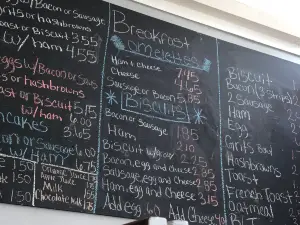 Bacon or Sausage
Grits or hashbrowns
Bacon or Sausage 3.55
w/ham 4.55
Eggs w/Bacon or S
or hashbrowns
ast or Biscuit 5.15
w/Ham
ncakes 3.65
on or Sausage
w/Ham 6.75
1.50
1.50
Orange Juice
Apple Juice
Milk
Chocolate milk
Breakfast
omelettes
Ham & cheese 7.45
Cheese
Sausage 5.85
Biscuits
Bacon or Sausage 1.85
Ham
Biscuit w/ 2.10
Bacon, egg and cheese 2.25
Sausage, egg and cheese 2.85
Ham, egg and Cheese 3.15
Add egg .60 Add Cheese .40
Biscuit
Bacon (3 Strips)
2 Sausage
Ham
Egg
Grits Bowl
Hashbrowns
Toast
French Toast
Oatmeal
BLT